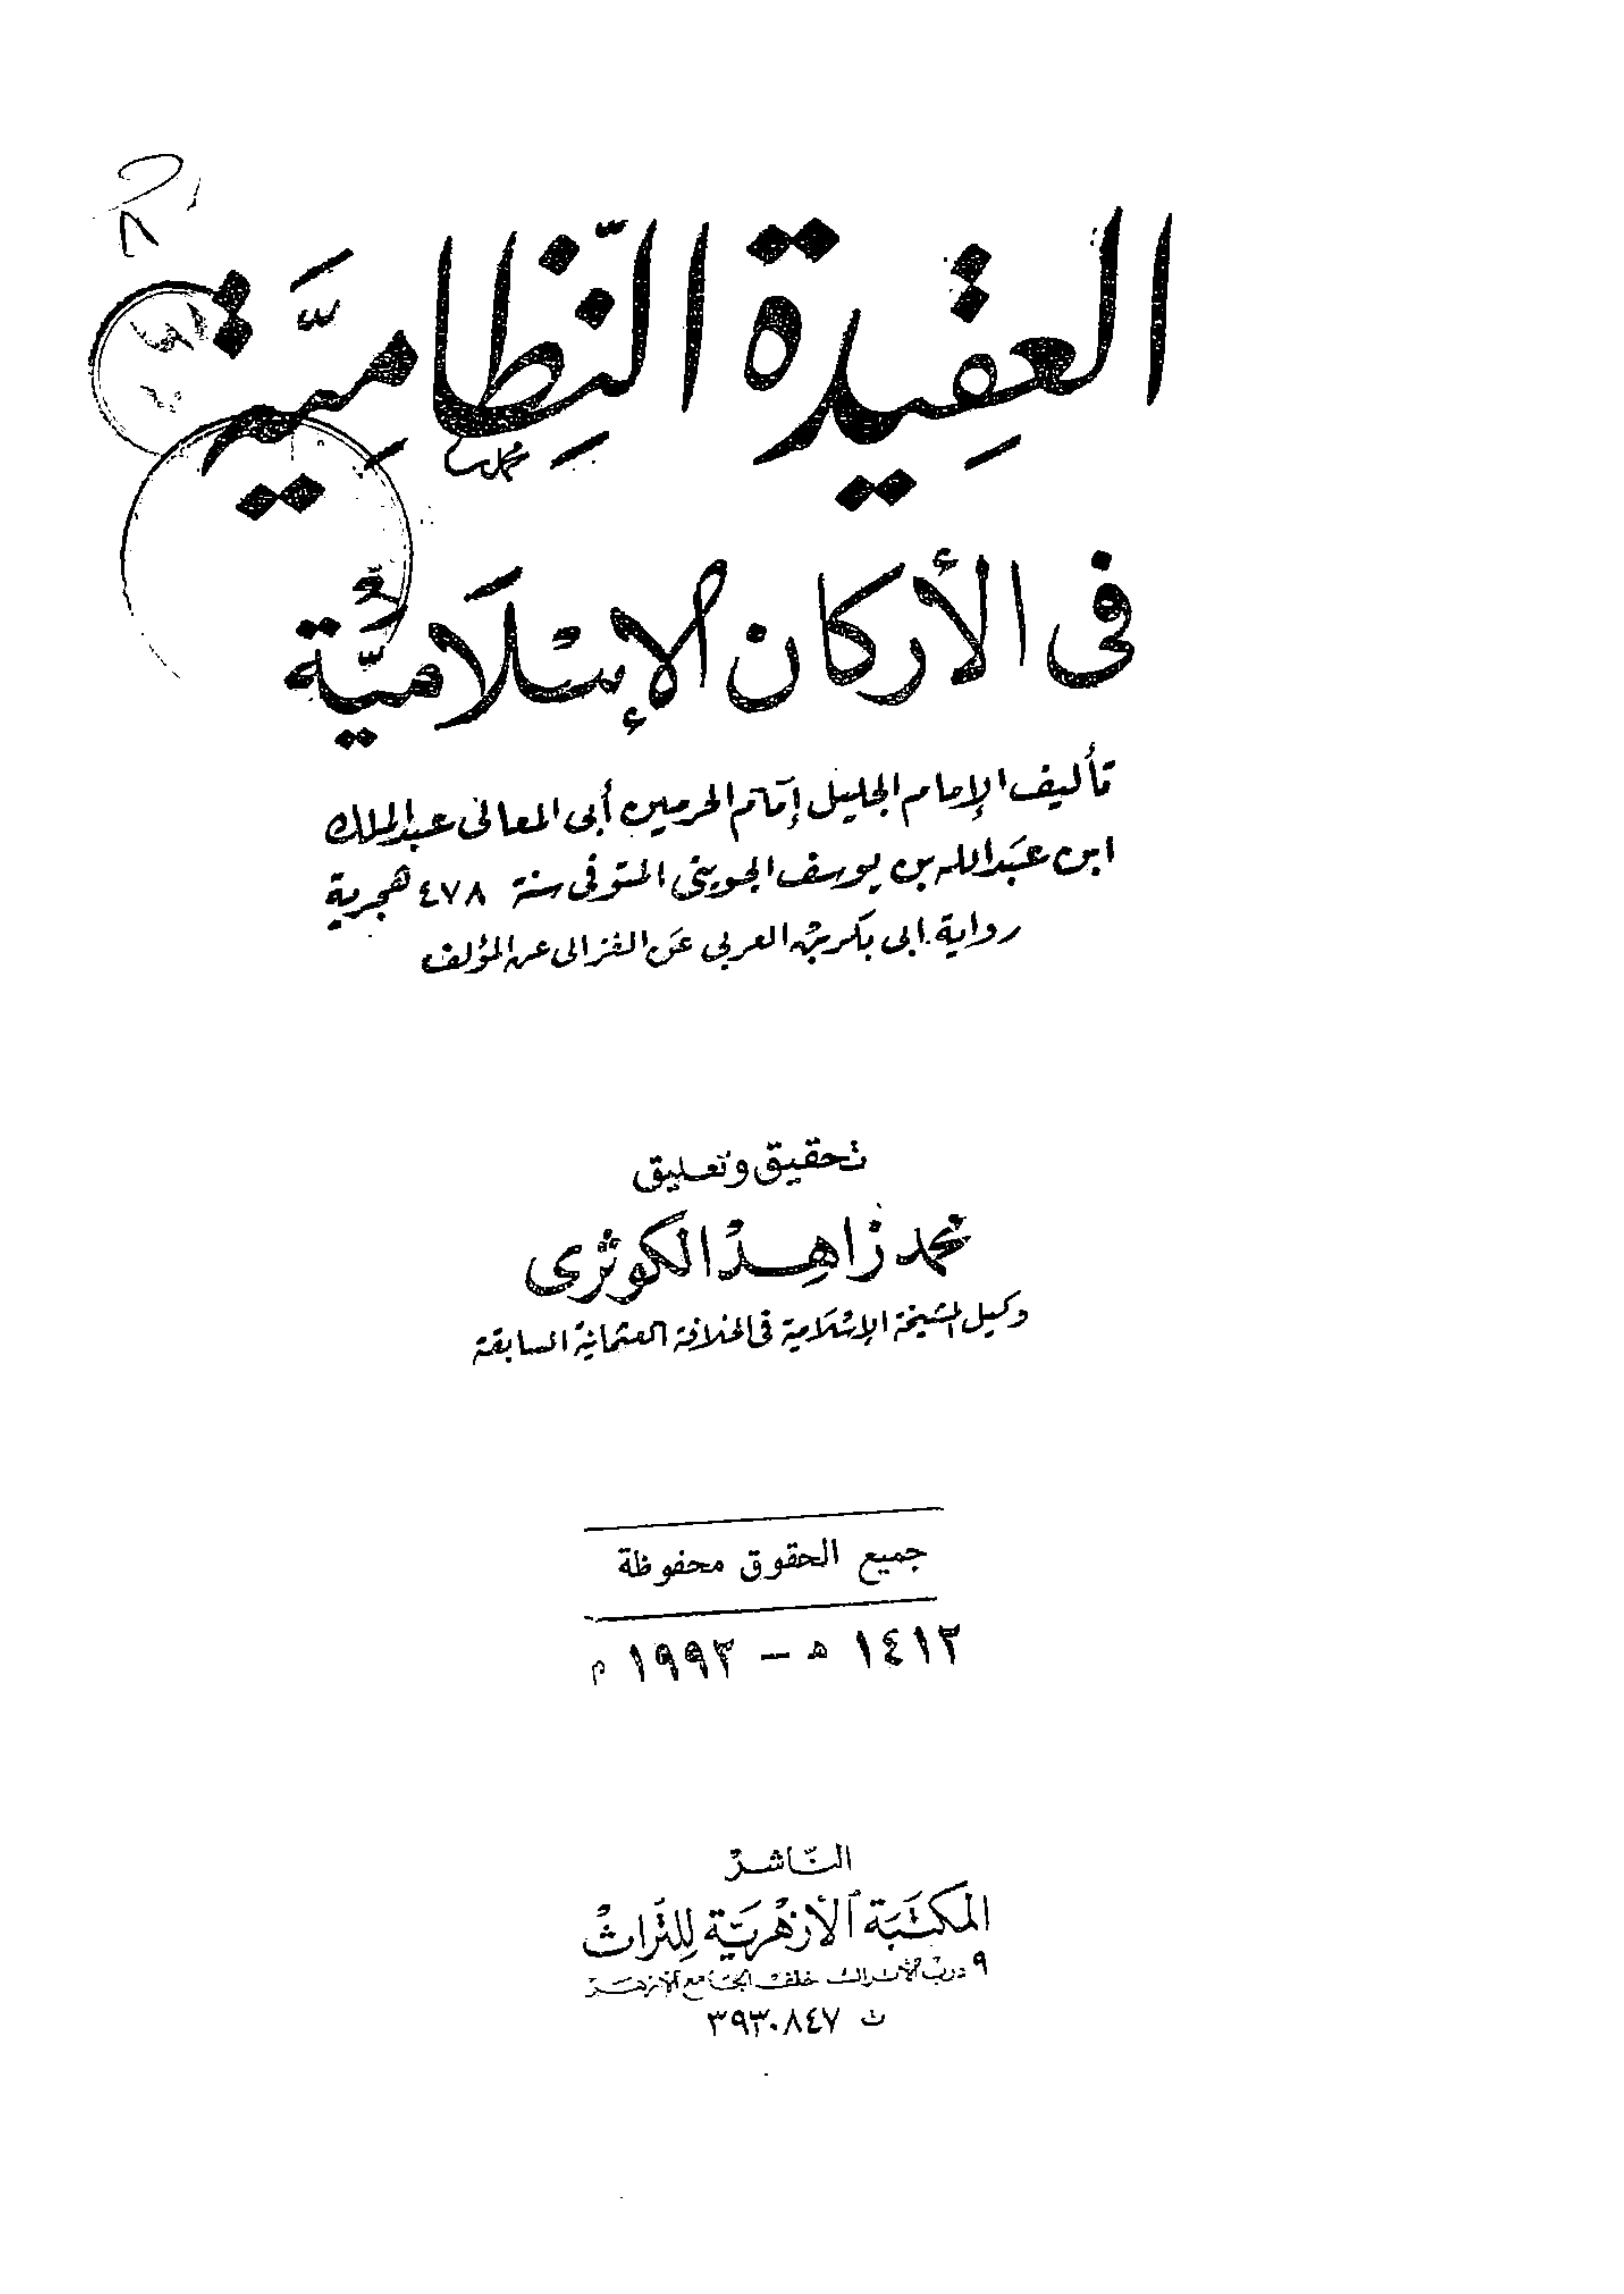 العقيدة النِّظاميَّة
فى الأركان الإسْلَاميَّة
تأليف الإمام الجليل إمَام الحرمين أبى المعالى عبد الملك
ابن عبَد الله بن يوسف الجوينى المتوفى سنة ٤٧٨ هجرية
رواية ابى بكر بنْ العربى عَن الغزالى عن المؤلف
تحقيق وتعليق
محمد زاهِدْ الكوثرى
وكيل المشيخة الإسْلَامية فى الخلافة العثمانية السابقة
جميع الحقوق محفوظة
١٤١٢ هـ – ١٩٩٢ م
النّاشرْ
المكتبَة الأزهَريَّة لِلتَراثْ
٩ دربْ الأتراك خلف الجَامع الأزهَر
ت ٣٩٣٠٨٤٧